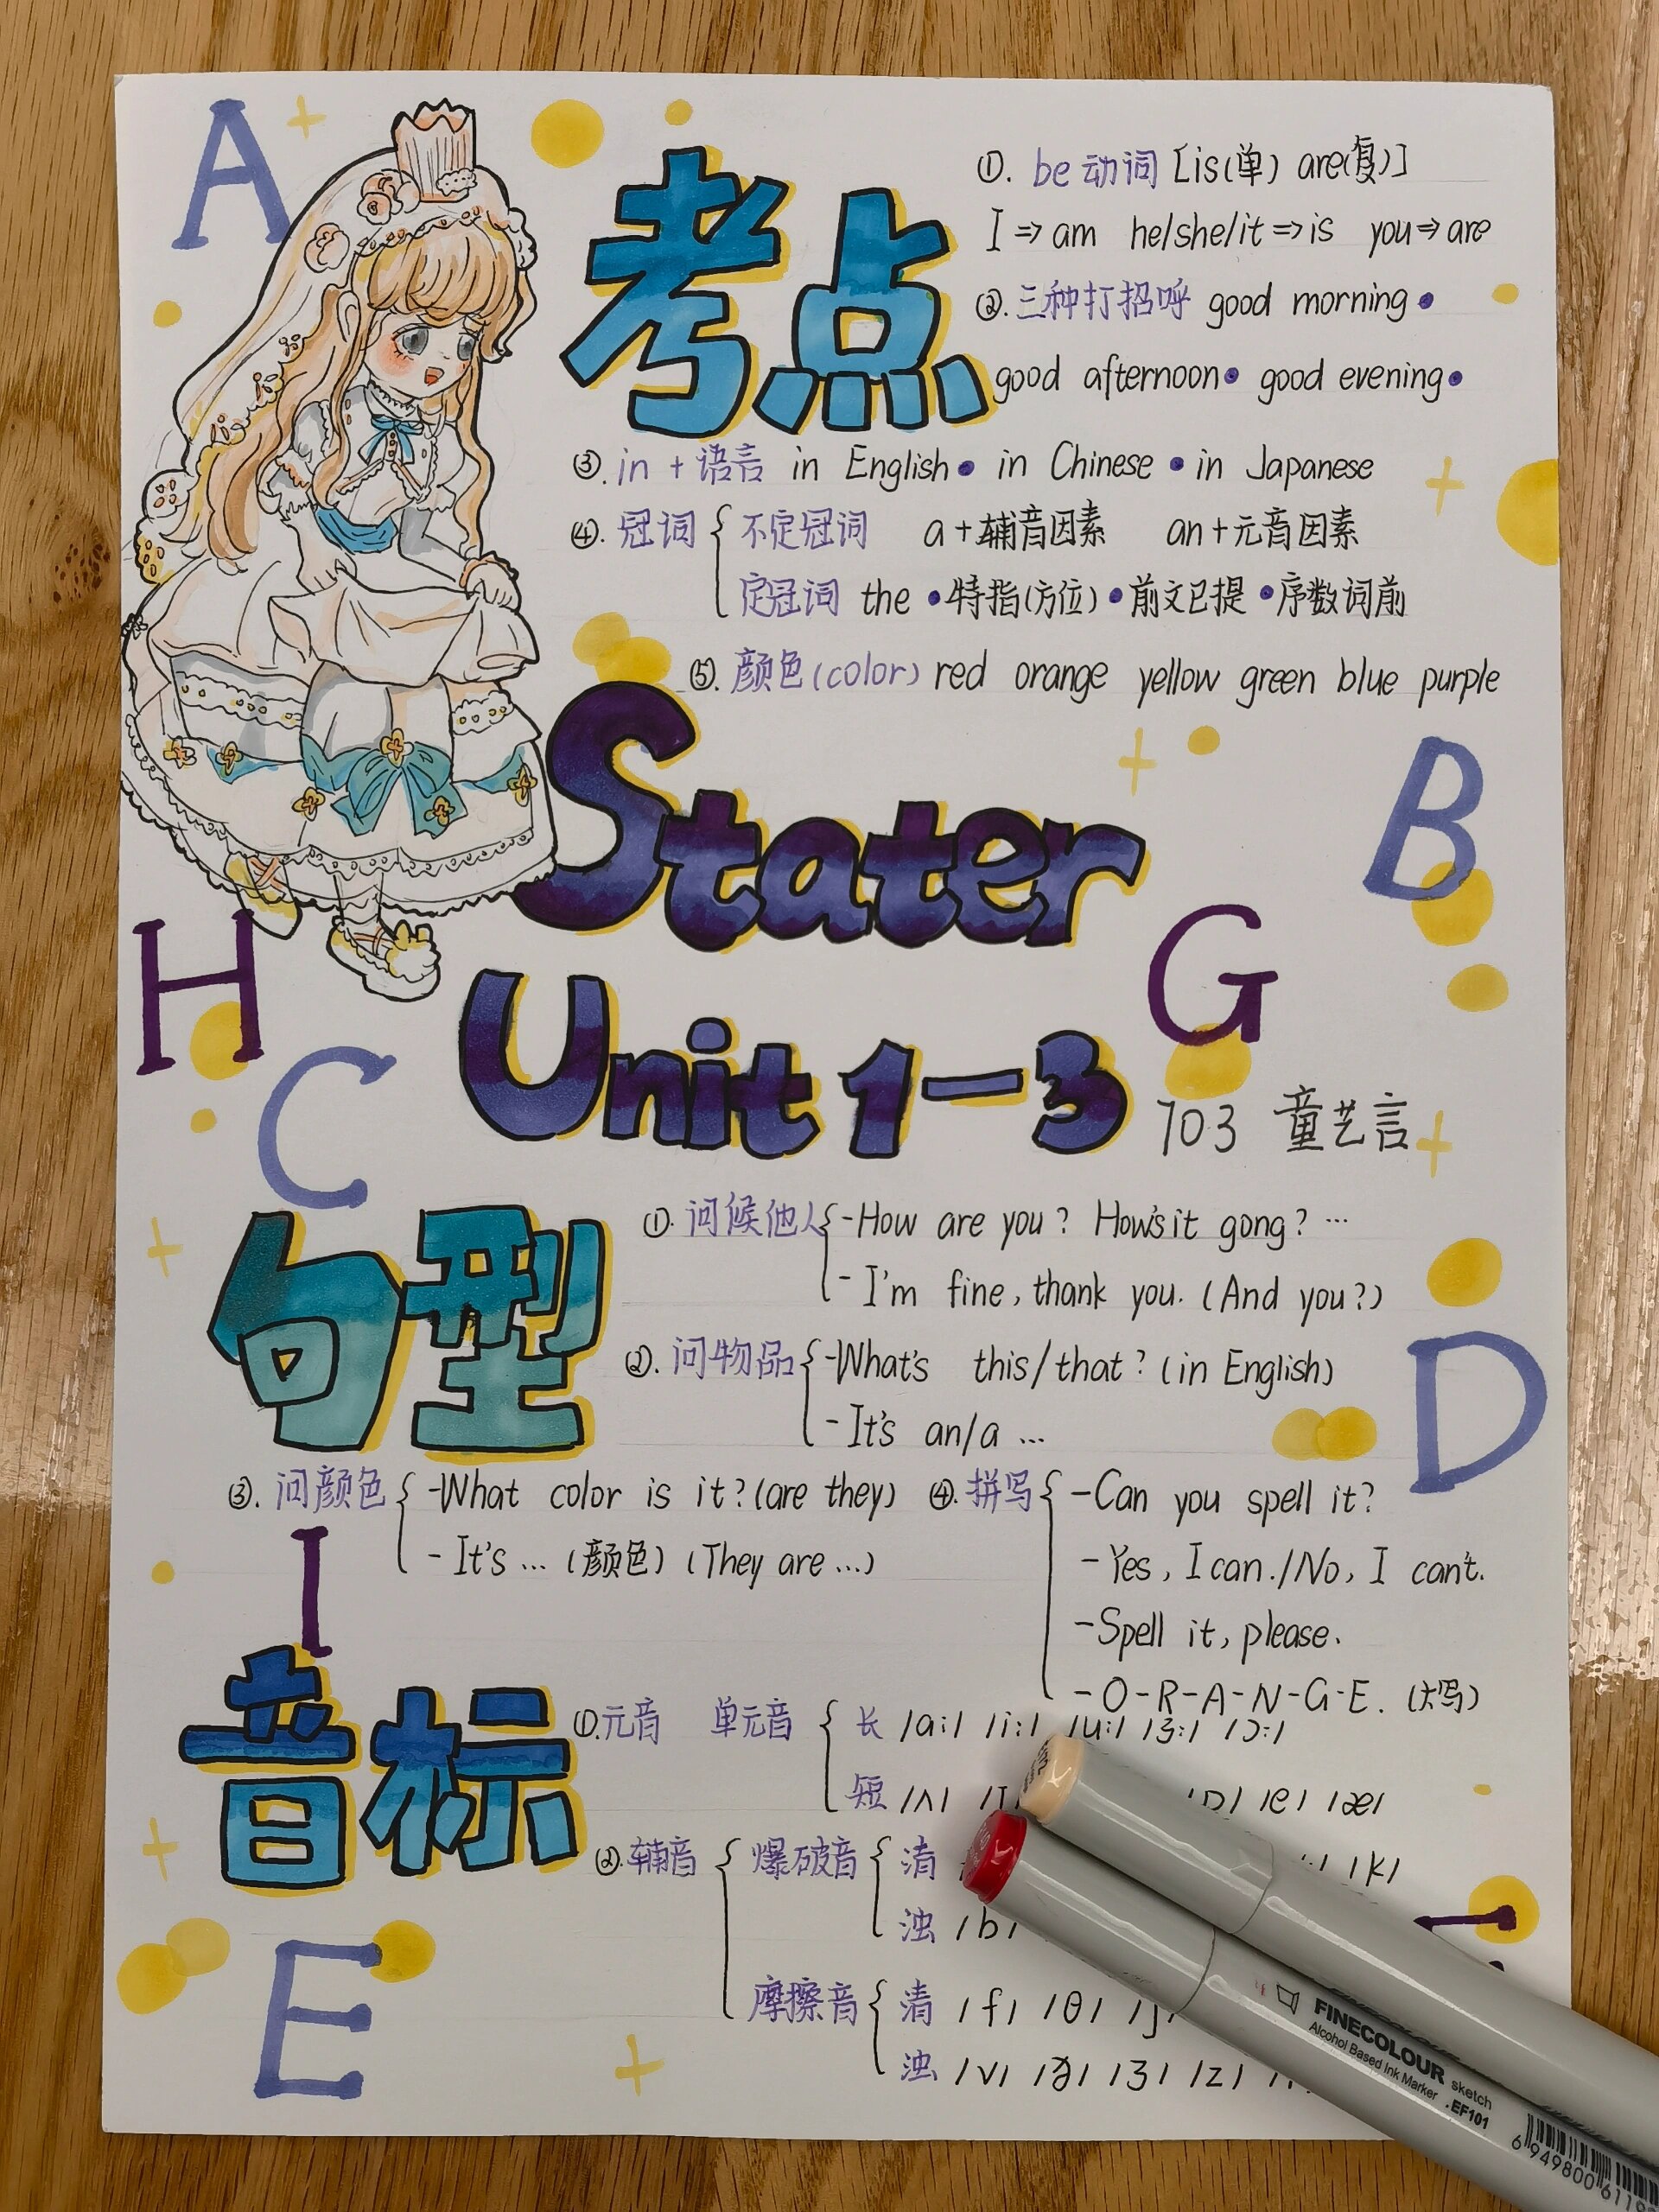 A
考点
①. be动词 [is(单) are(复)]
I⇒am he/she/it⇒is you⇒are
②.三种打招呼 good morning•
good afternoon• good evening•
③. in + 语言 in English• in Chinese •in Japanese
④. 冠词 { 不定冠词 a+辅音因素 an+元音因素
定冠词 the •特指(方位) •前文已提 •序数词前
⑤. 颜色(color) red orange yellow green blue purple
Stater
B
H
G
Unit 1-3
C
703 童艺言
句型
①. 问候他人{ -How are you? How's it gong? …
- I'm fine, thank you. (And you?)
②. 问物品{ -What's this/that? (in English)
- It's an/a …
D
③. 问颜色{ -What color is it? (are they)
- It's … (颜色) (They are …)
④. 拼写{ -Can you spell it?
-Yes, I can./No, I can't.
-Spell it, please.
-O-R-A-N-G-E. (大写)
I
音标
①.元音 单元音 { 长 /a:/ /i:/ /u:/ /3:/ /ɔ:/
短 /ʌ/ /ɒ/ /e/ /æ/
②.辅音 { 爆破音 { 清 /k/
浊 /b/
摩擦音 { 清 /f/ /θ/
浊 /v/ /ð/ /ʒ/ /z/
E
FINECOLOUR sketch
Alcohol Based Ink Marker .EF101